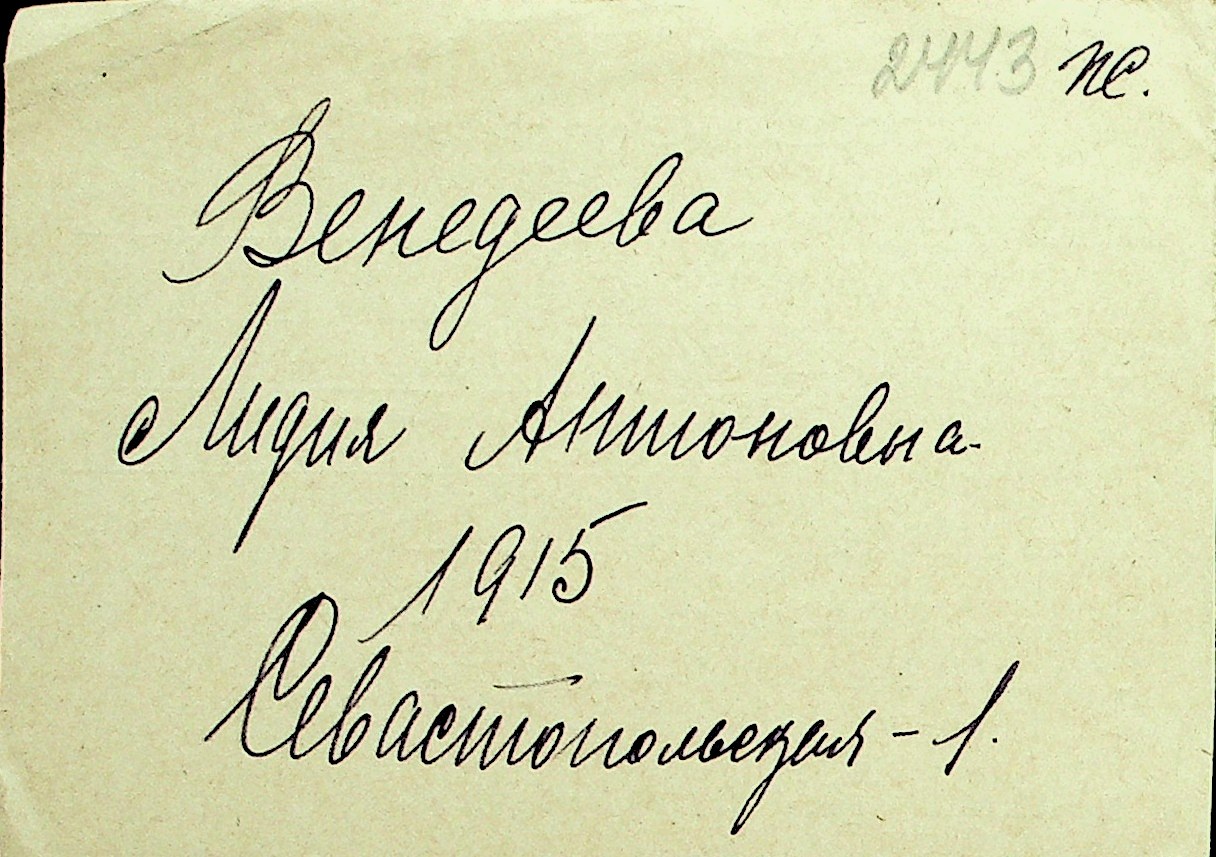 2443 пс.
Венедеева
Лидия Антоновна
1915
Севастопольская - 1.